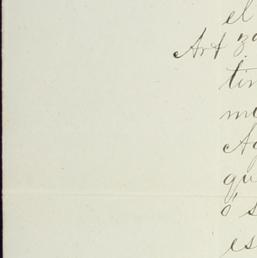 el
Art 3º
tin
me
Ag
que
ó s
es